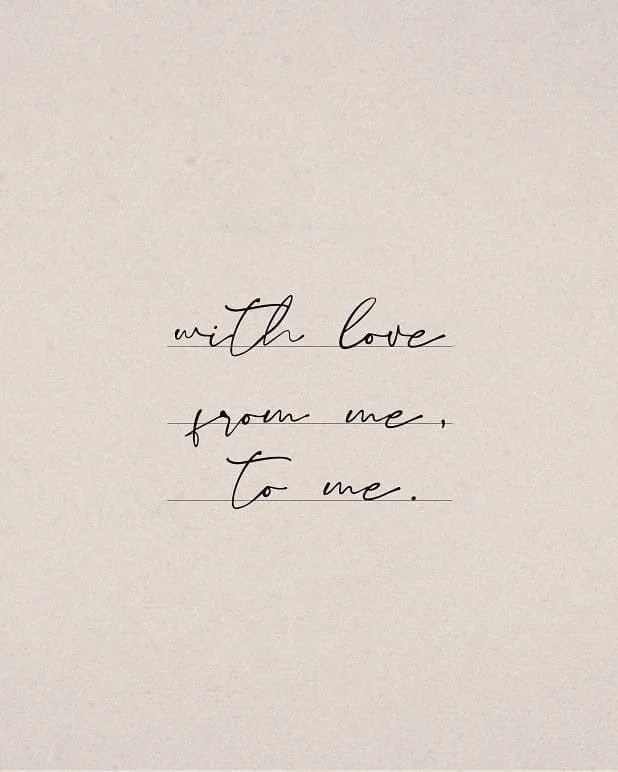 with love
from me,
to me.